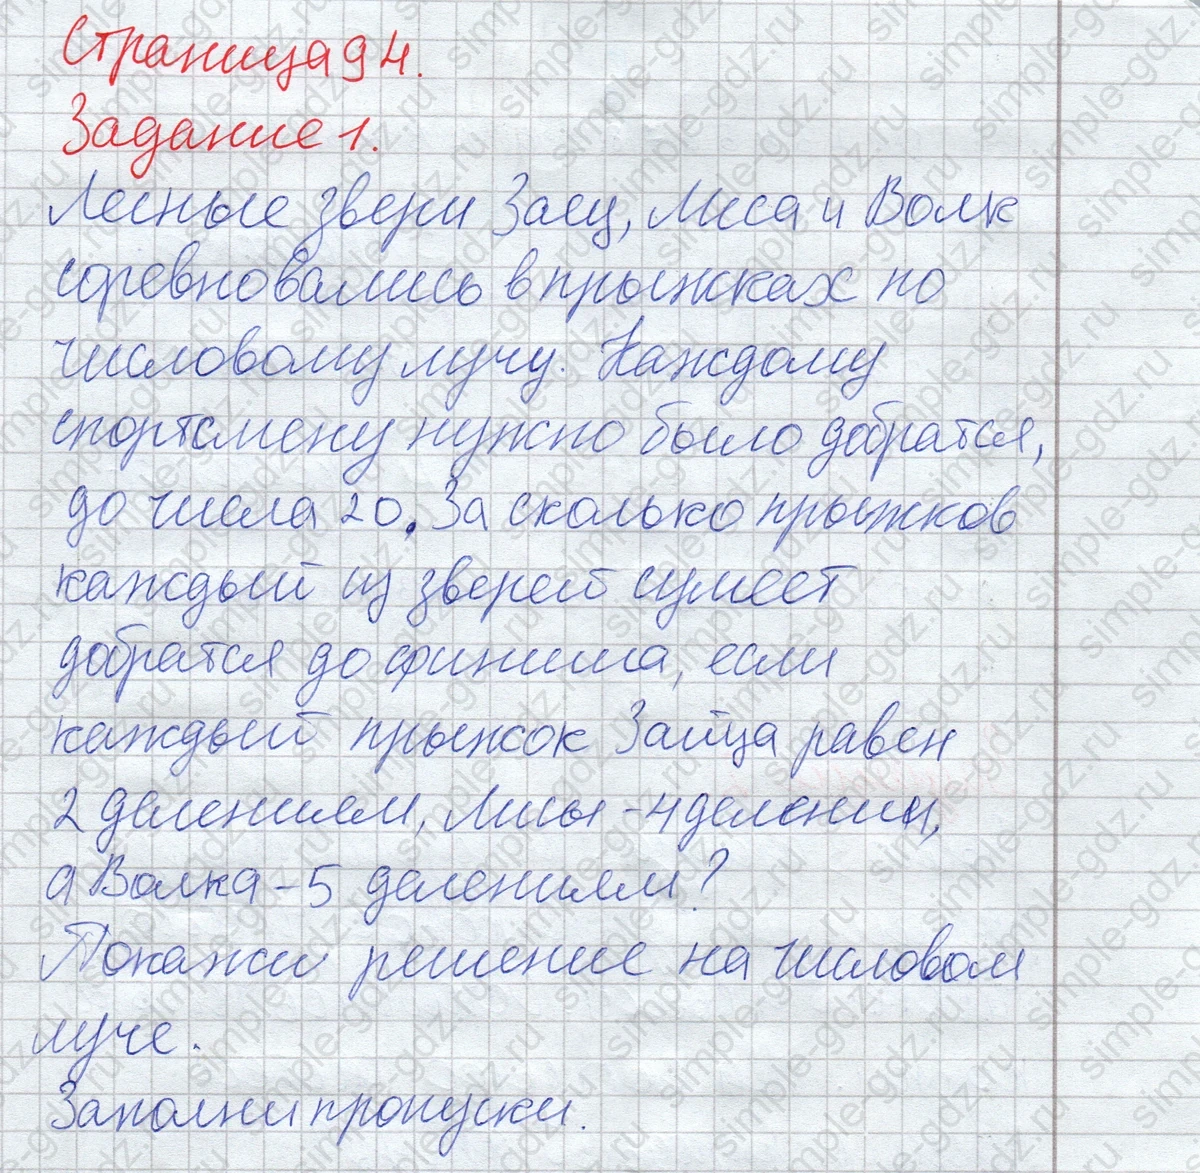 Страница 94.
Задание 1.
Лесные звери Заяц, Лиса и Волк
соревновались в прыжках по
числовому лучу. Каждому
спортсмену нужно было добратся,
до числа 20. За сколько прыжков
каждый из зверей сумеет
добратся до финиша, если
каждый прыжок Зайца равен
2 делениям, Лисы - 4 делении,
а Волка - 5 делениям?
Покажи решение на числовом
луче.
Заполни пропуски.
simple-gdz.ru